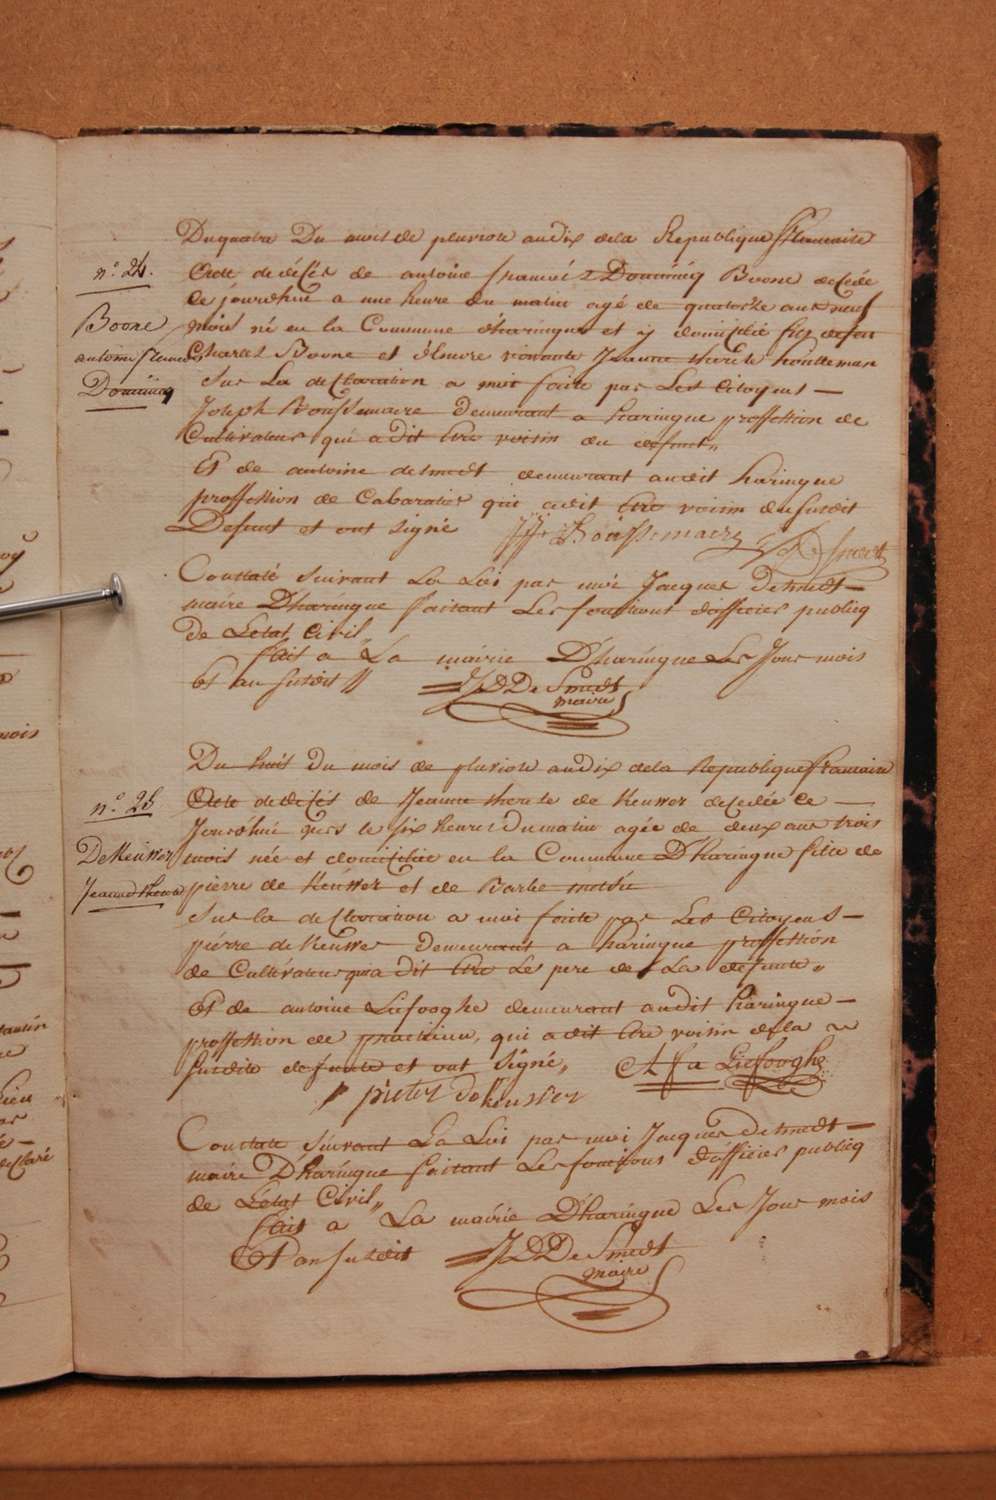 Du quatre Du mois de pluviose an dix de la Republique francaise
n.º 24.
Acte de décés de antoine francois Dominiq Boone décédé
ce jourdhui a une heure du matin agé de quatorze ans neuf
Boone
mois né en la Commune d'haringue et y domicilié fils de feu
antoine francois
Charles Boone et d'encore vivante Jeanne therese houtteman
Dominiq
Sur La declaration a moi faite par Les Citoyens —
Joseph Boussemaere demeurant a haringue proffession de
Cultivateur qui a dit être voisin du defunt„
Et de antoine desmedt demeurant audit haringue
proffession de Cabaratier qui a dit être voisin du susdit
Defunt et ont signé J.F. Boussemaere A Desmedt
Constaté Suivant La Loi par moi Jacques Desmedt —
maire D'haringue faisant Les fonctions d'officier publiq
de Letat Civil„
fait a La mairie D'haringue Les Jour mois
Et an susdit // JDDeSmedt
maire
Du huit Du mois de pluviose an dix de la Republique francaise
n.º 25
Acte de décés de Jeanne therese de Keuwer décédée ce —
Jourdhui vers le six heures du matin agée de deux ans trois
DeKeuwer
mois née et domiciliée en la Commune D'haringue fille de
Jeanne therese
pierre de Keuwer et de Barbe
Sur la declaration a moi faite par Les Citoyens —
piérre de Keuwer Demeurant a haringue proffession
de Cultivateur qui a dit être Le pere de La defunte„
Et de antoine Liefooghe demeurant audit haringue —
proffession de praticien, qui a dit être voisin de la
susdite defunte et ont signé„ A f a Liefooghe
pieter dekeuwer
Constaté Suivant La Loi par moi Jacques Desmedt —
maire D'haringue faisant Les fonctions d'officier publiq
de Létat Civil„
fait a La mairie D'haringue Les Jour mois
Et an susdit JDDeSmedt
maire